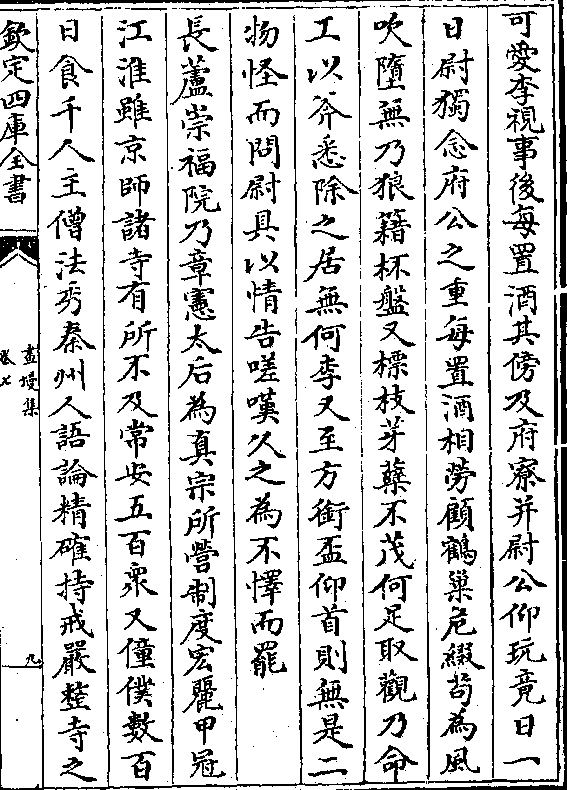 可愛李視事後每置酒其傍及府寮并尉公仰玩竟日一
日尉獨念府公之重每置酒相勞顧鶴巢危綴茍為風
吹墮無乃狼籍杯盤又標枝芽蘖不茂何足取觀乃命
工以斧悉除之居無何李又至方銜盃仰首則無是二
物怪而問尉具以情告嗟嘆久之為不懌而罷
長蘆崇福院乃章憲太后為真宗所營制度宏麗甲冠
江淮雖京師諸寺有所不及常安五百衆又僮僕數百
日食千人主僧法秀秦州人語論精確持戒嚴整寺之
欽定四庫全書
畫墁集
卷七
九